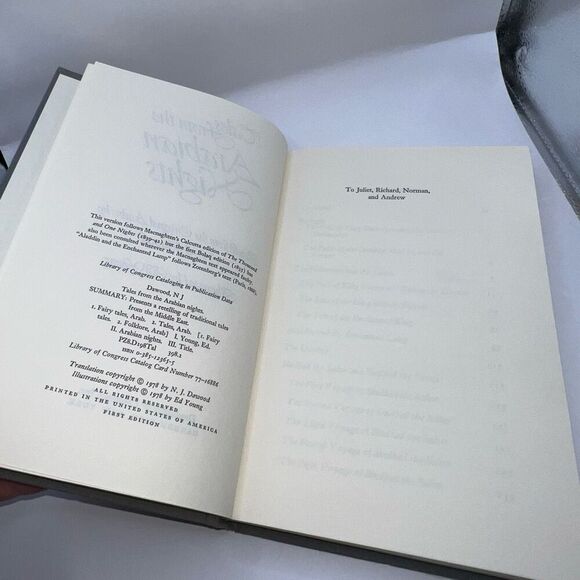 This version follows Macnaghten's Calcutta edition of The Thousand
and One Nights (1839-42) but the first Bulaq edition (1835) has
also been consulted wherever the Macnaghten text appeared faulty.
"Aladdin and the Enchanted Lamp" follows Zotenberg's text (Paris, 1888).
Library of Congress Cataloging in Publication Data
Dawood, N J
Tales from the Arabian nights.
SUMMARY: Presents a retelling of traditional tales
from the Middle East.
1. Fairy tales, Arab. 2. Tales, Arab. [1. Fairy
tales. 2. Folklore, Arab] I. Young, Ed.
II. Arabian nights. III. Title.
PZ8.D198Tal 398.2
ISBN 0-385-12363-5
Library of Congress Catalog Card Number 77-16886
Translation copyright © 1978 by N. J. Dawood
Illustrations copyright © 1978 by Ed Young
ALL RIGHTS RESERVED
PRINTED IN THE UNITED STATES OF AMERICA
FIRST EDITION
To Juliet, Richard, Norman,
and Andrew